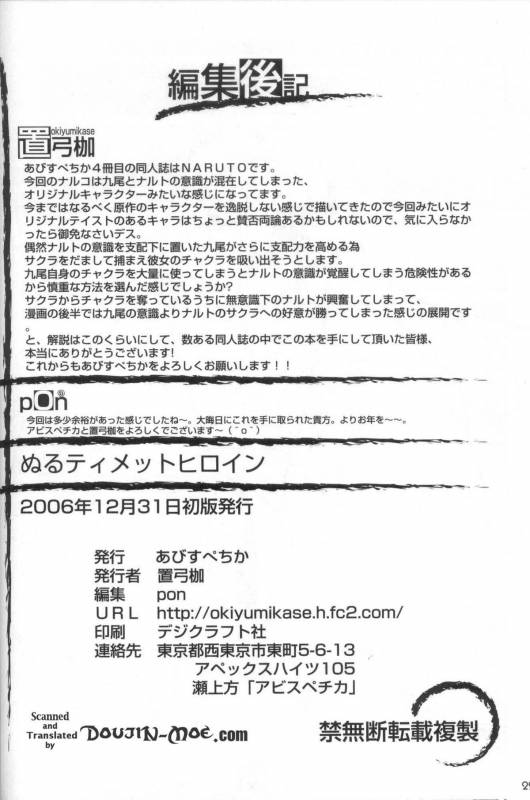 編集後記
okiyumikase
置弓枷
あびすぺちか4冊目の同人誌はNARUTOです。
今回のナルコは九尾とナルトの意識が混在してしまった、
オリジナルキャラクターみたいな感じになってます。
今まではなるべく原作のキャラクターを逸脱しない感じで描いてきたので今回みたいにオ
リジナルテイストのあるキャラはちょっと賛否両論あるかもしれないので、気に入らなか
ったら御免なさいデス。
偶然ナルトの意識を支配下に置いた九尾がさらに支配力を高める為
サクラをだまして捕まえ彼女のチャクラを吸い出そうとします。
九尾自身のチャクラを大量に使ってしまうとナルトの意識が覚醒してしまう危険性がある
から慎重な方法を選んだ感じでしょうか?
サクラからチャクラを奪っているうちに無意識下のナルトが興奮してしまって、
漫画の後半では九尾の意識よりナルトのサクラへの好意が勝ってしまった感じの展開です
。
と、解説はこのくらいにして、数ある同人誌の中でこの本を手にして頂いた皆様、
本当にありがとうございます!
これからもあびすぺちかをよろしくお願いします!!
pon@
今回は多少余裕があった感じでしたね〜。大晦日にこれを手に取られた貴方。よりお年を〜〜。
アビスペチカと置弓枷をよろしくでございます〜(ˆoˆ)
ぬるティメットヒロイン
2006年12月31日初版発行
発行 あびすぺちか
発行者 置弓枷
編集 pon
URL http://okiyumikase.h.fc2.com/
印刷 デジクラフト社
連絡先 東京都西東京市東町5-6-13
アペックスハイツ105
瀬上方「アビスペチカ」
Scanned
and
Translated
by
DOUJIN-MOE.com
禁無断転載複製